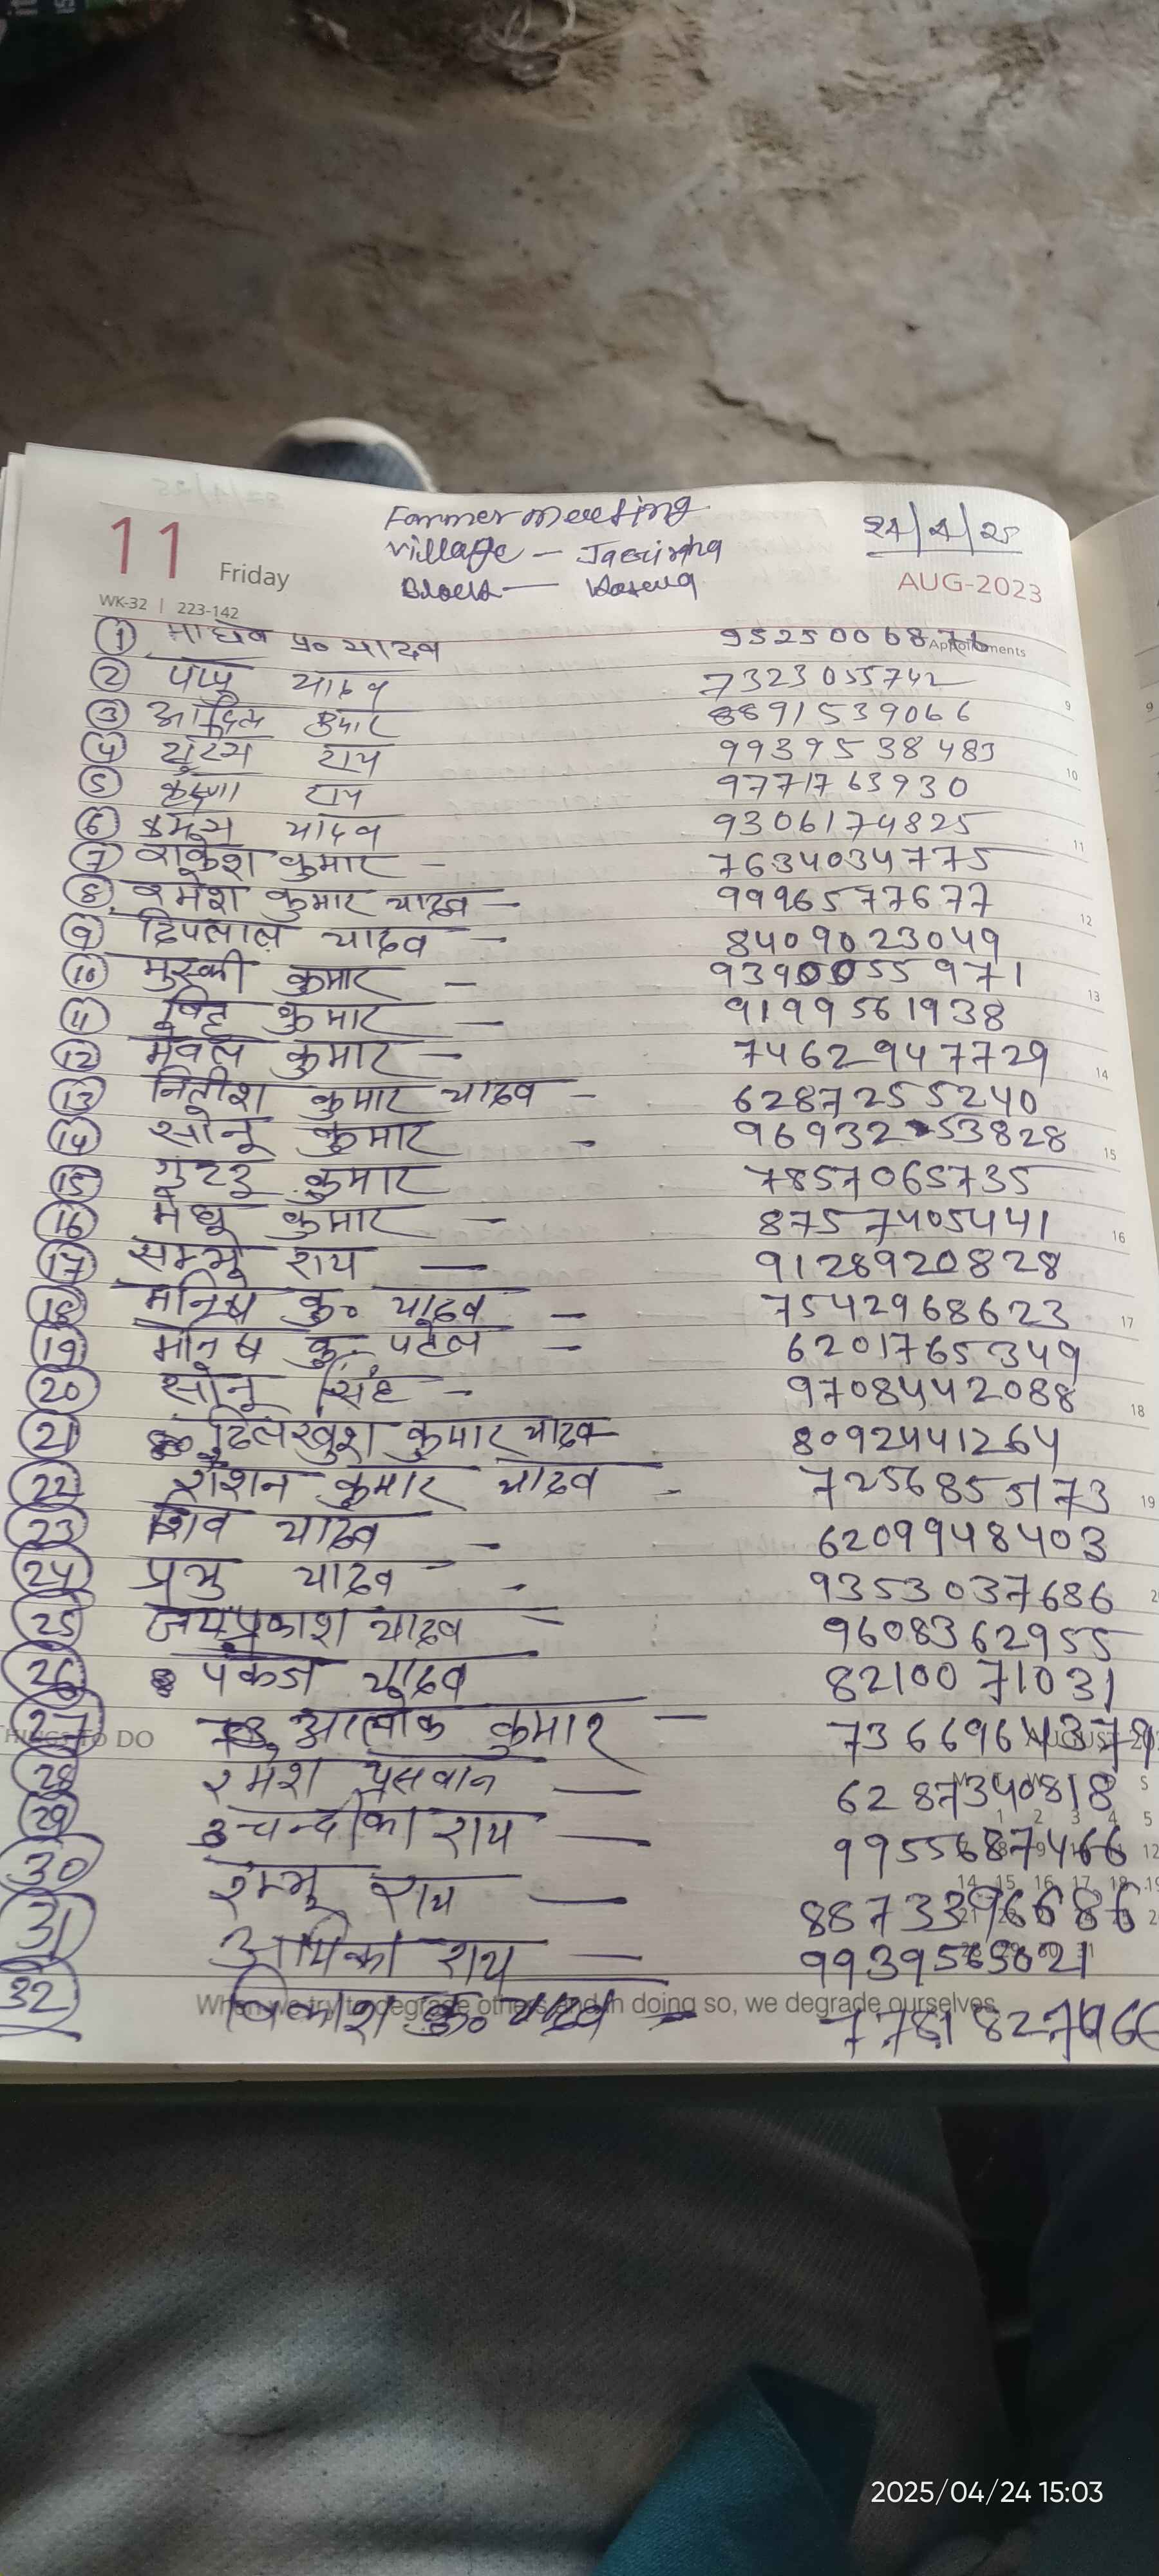 Farmer meeting
24/4/25
11 Friday
Village -
AUG-2023
Block -
WK-32 | 223-142
① माधव प्र० यादव
Appointments
② पप्पु यादव 7323055742
③ आदित्य कुमार 8891539066 9
④ राय 9939538483
⑤ कृष्णा राय 9771763930 10
⑥ यादव 9306174825
⑦ राकेश कुमार - 7634034775 11
⑧ रमेश कुमार यादव - 9996577677
⑨ दिपलाल यादव - 8409023049 12
⑩ कुमार - 9390055971
⑪ कुमार - 9199561938 13
⑫ मेवल कुमार - 7462947729
⑬ नितीश कुमार यादव - 6287255240 14
⑭ सोनू कुमार - 53828
⑮ कुमार 7857065735 15
⑯ मेधू कुमार - 8757405441
⑰ सम्भु राय - 9128920828 16
⑱ मनिष कु० यादव - 7542968623
⑲ मनिष कु० पटेल - 6201765349 17
⑳ सोनू सिंह - 9708442088
㉑ दिलखुश कुमार यादव 8092441264 18
㉒ रौशन कुमार यादव - 7256855173
㉓ शिव यादव - 6209948403 19
㉔ प्रभु यादव - 9353037686
㉕ जयप्रकाश यादव - 9608362955
㉖ पंकज यादव 8210071031
㉗ आलोक कुमार -
THINGS TO DO
㉘ रमेश पासवान - 6287340818
㉙ चन्दीका राय - 9955687466
㉚ राय - 8873396686
㉛ राय -
When we try to degrade others and in doing so, we degrade ourselves
㉜ विकाश कु० यादव -
2025/04/24 15:03